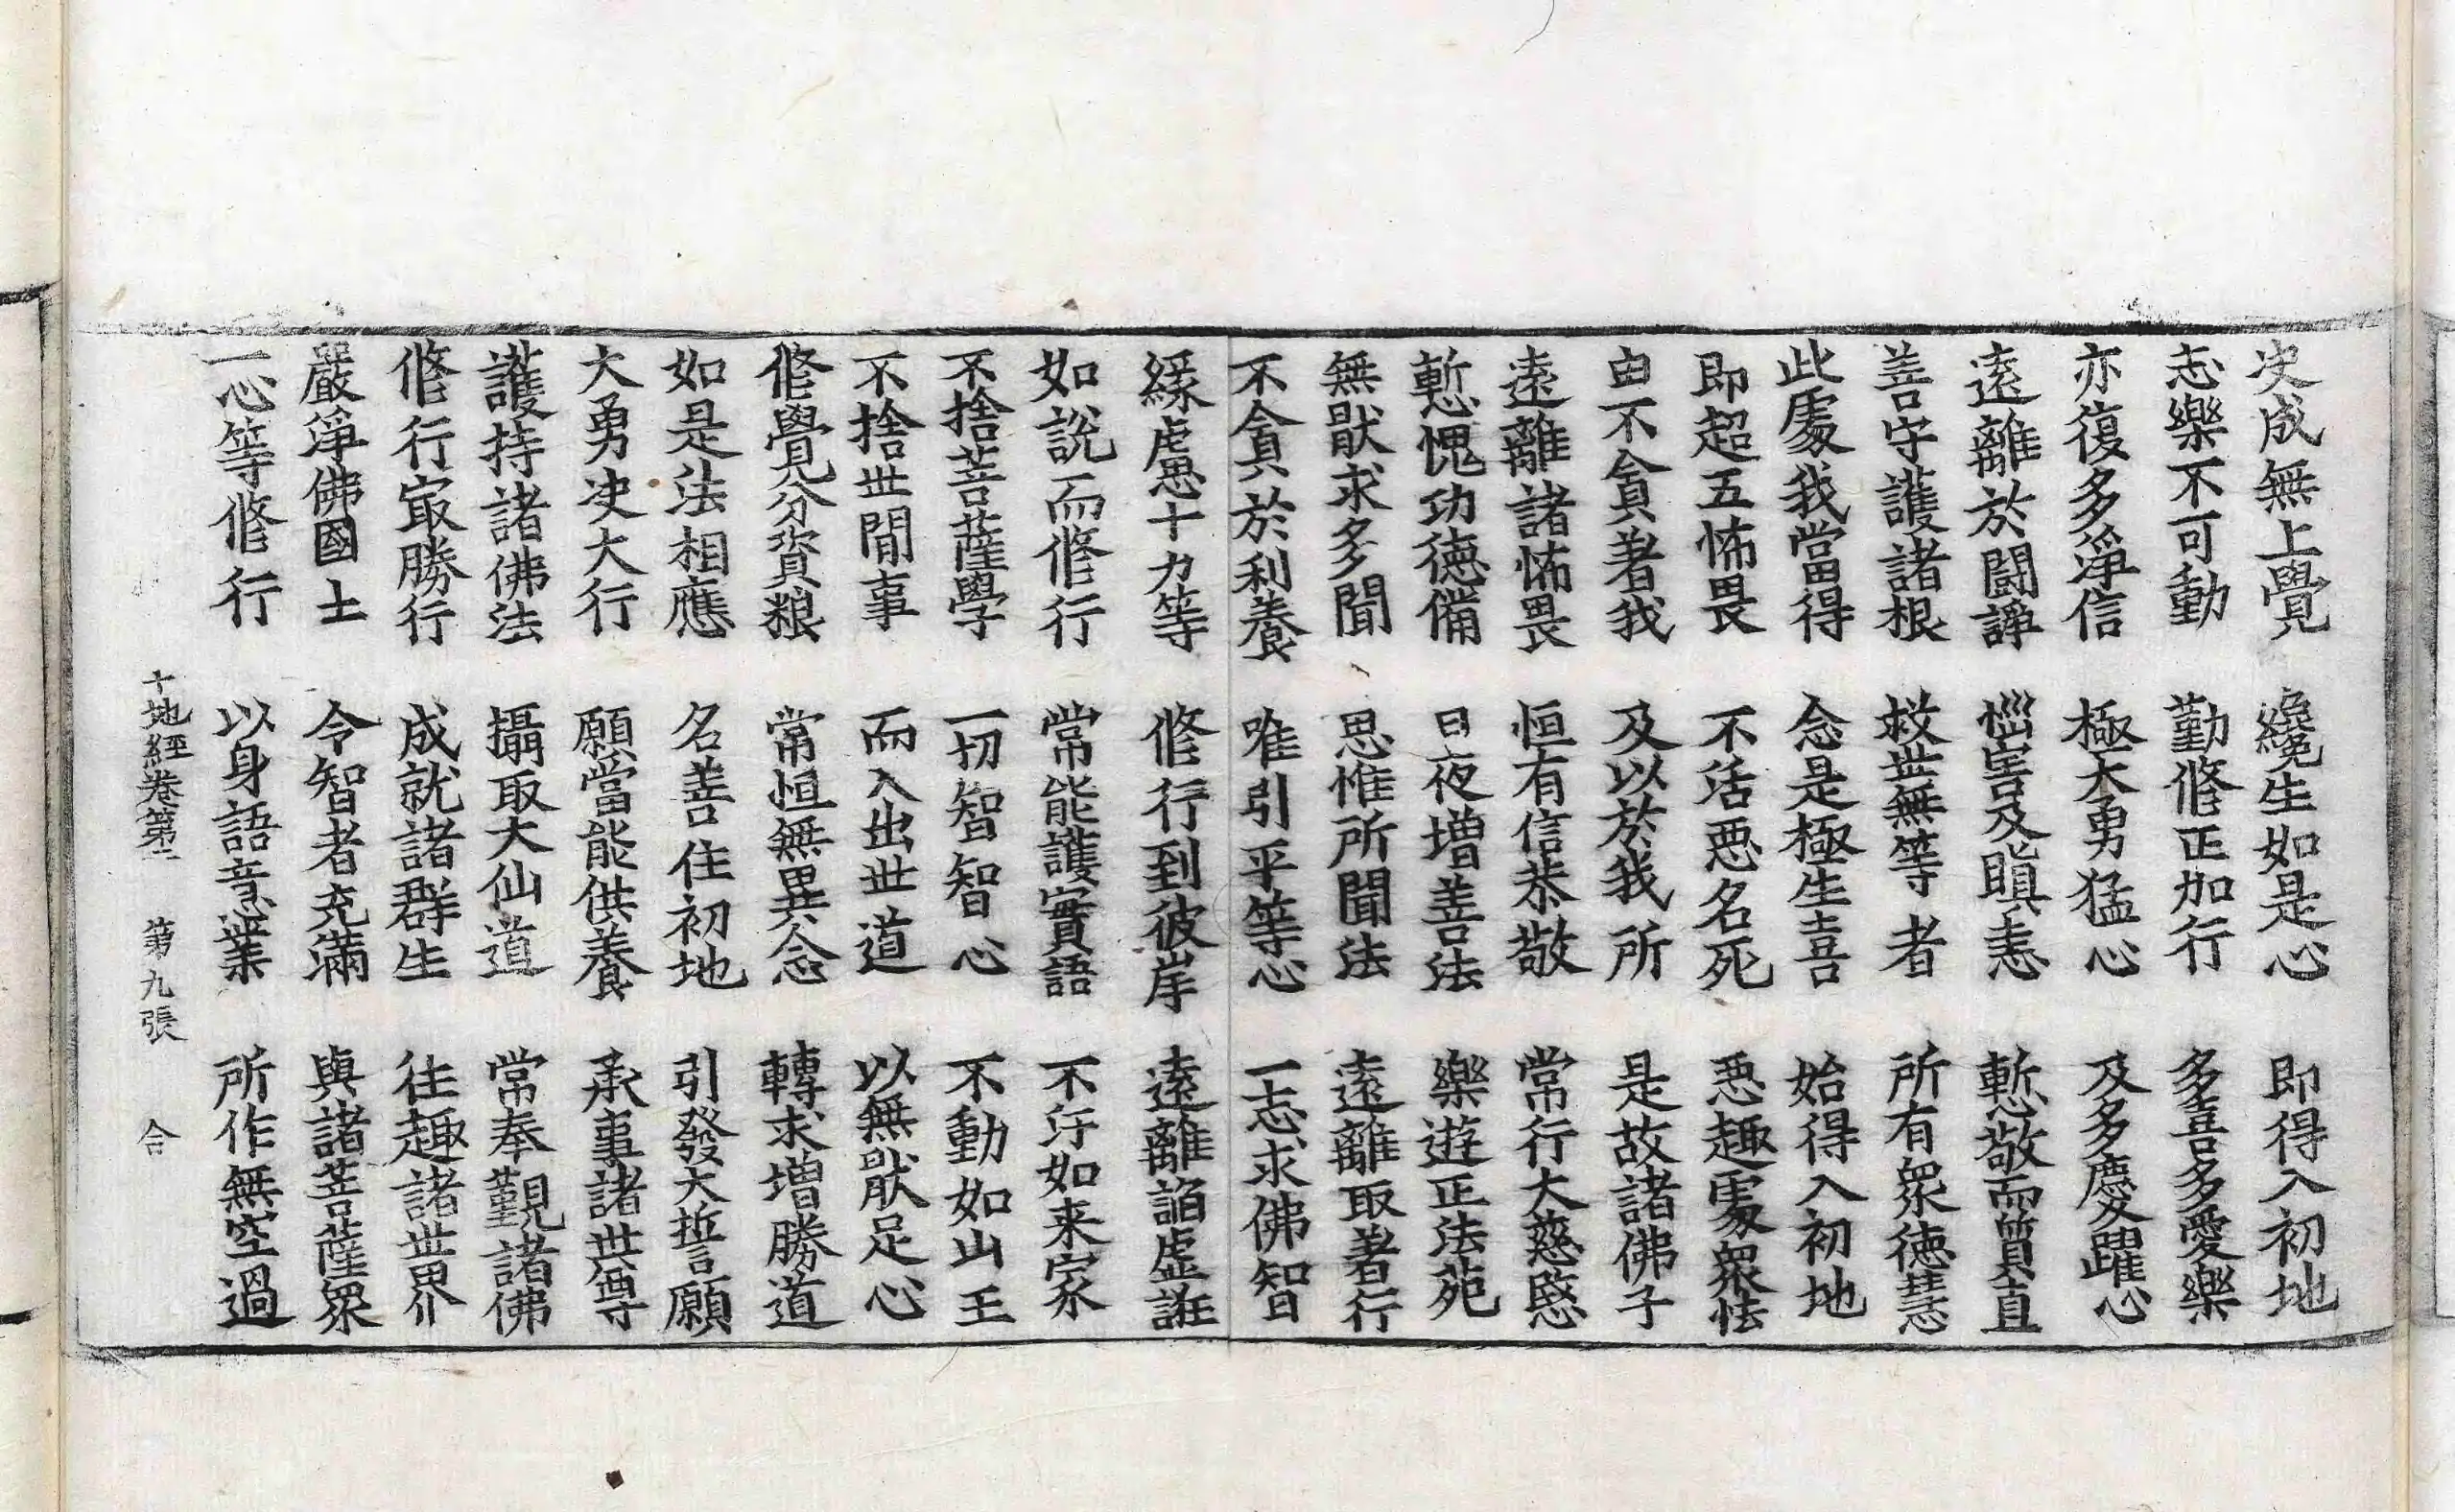 决成無上覺 纔生如是心 即得入初地
志樂不可動 勤修正加行 多喜多愛樂
亦復多淨信 極大勇猛心 及多慶躍心
遠離於鬪諍 惱害及瞋恚 慙敬而質直
善守護諸根 救世無等者 所有衆德慧
此處我當得 念是極生喜 始得入初地
即超五怖畏 不活惡名死 惡趣處衆怯
由不貪著我 及以於我所 是故諸佛子
遠離諸怖畏 恒有信恭敬 常行大慈愍
慙愧功德備 日夜增善法 樂遊正法苑
無猒求多聞 思惟所聞法 遠離取著行
不貪於利養 唯引平等心 一志求佛智
緣慮十力等 修行到彼岸 遠離諂虛誑
如說而修行 常能護實語 不汙如来家
不捨菩薩學 一切智智心 不動如山王
不捨世間事 而入出世道 以無猒足心
修覺分資粮 常恒無異念 轉求增勝道
如是法相應 名善住初地 引發大誓願
大勇决大行 願當能供養 承事諸世尊
護持諸佛法 攝取大仙道 常奉覲諸佛
修行㝡勝行 成就諸群生 往趣諸世界
嚴淨佛國土 令智者充滿 與諸菩薩衆
一心等修行 以身語意業 所作無空過
十地經卷第二 第九張 合